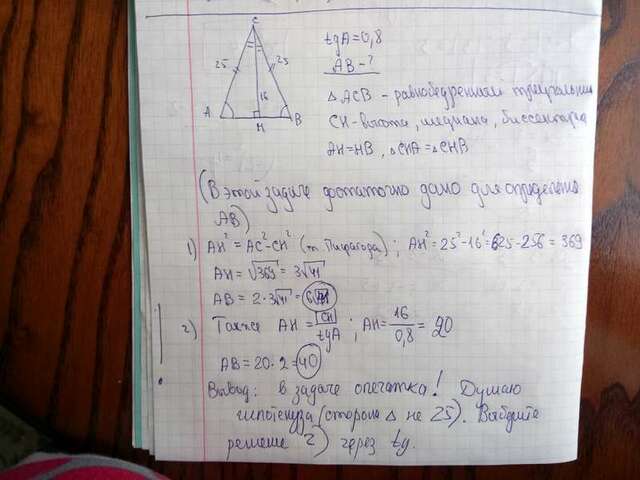 C
25
25
16
A
H
B
tgA=0,8
AB-?
△ACB - равнобедренный треугольник
CH-высота, медиана, биссектриса
AH=HB, △CHA=△CHB
(В этой задаче достаточно дано для определения
AB)
1) AH²=AC²-CH² (т. Пифагора); AH²=25²-16²=625-256=369
AH=√369=3√41
AB=2·3√41=6√41
2) Также AH=CH/tgA; AH=16/0,8=20
AB=20·2=40
Вывод: в задаче опечатка! Думаю
гипотенуза (сторона △ не 25). Выбирите
решение 2) через tg.